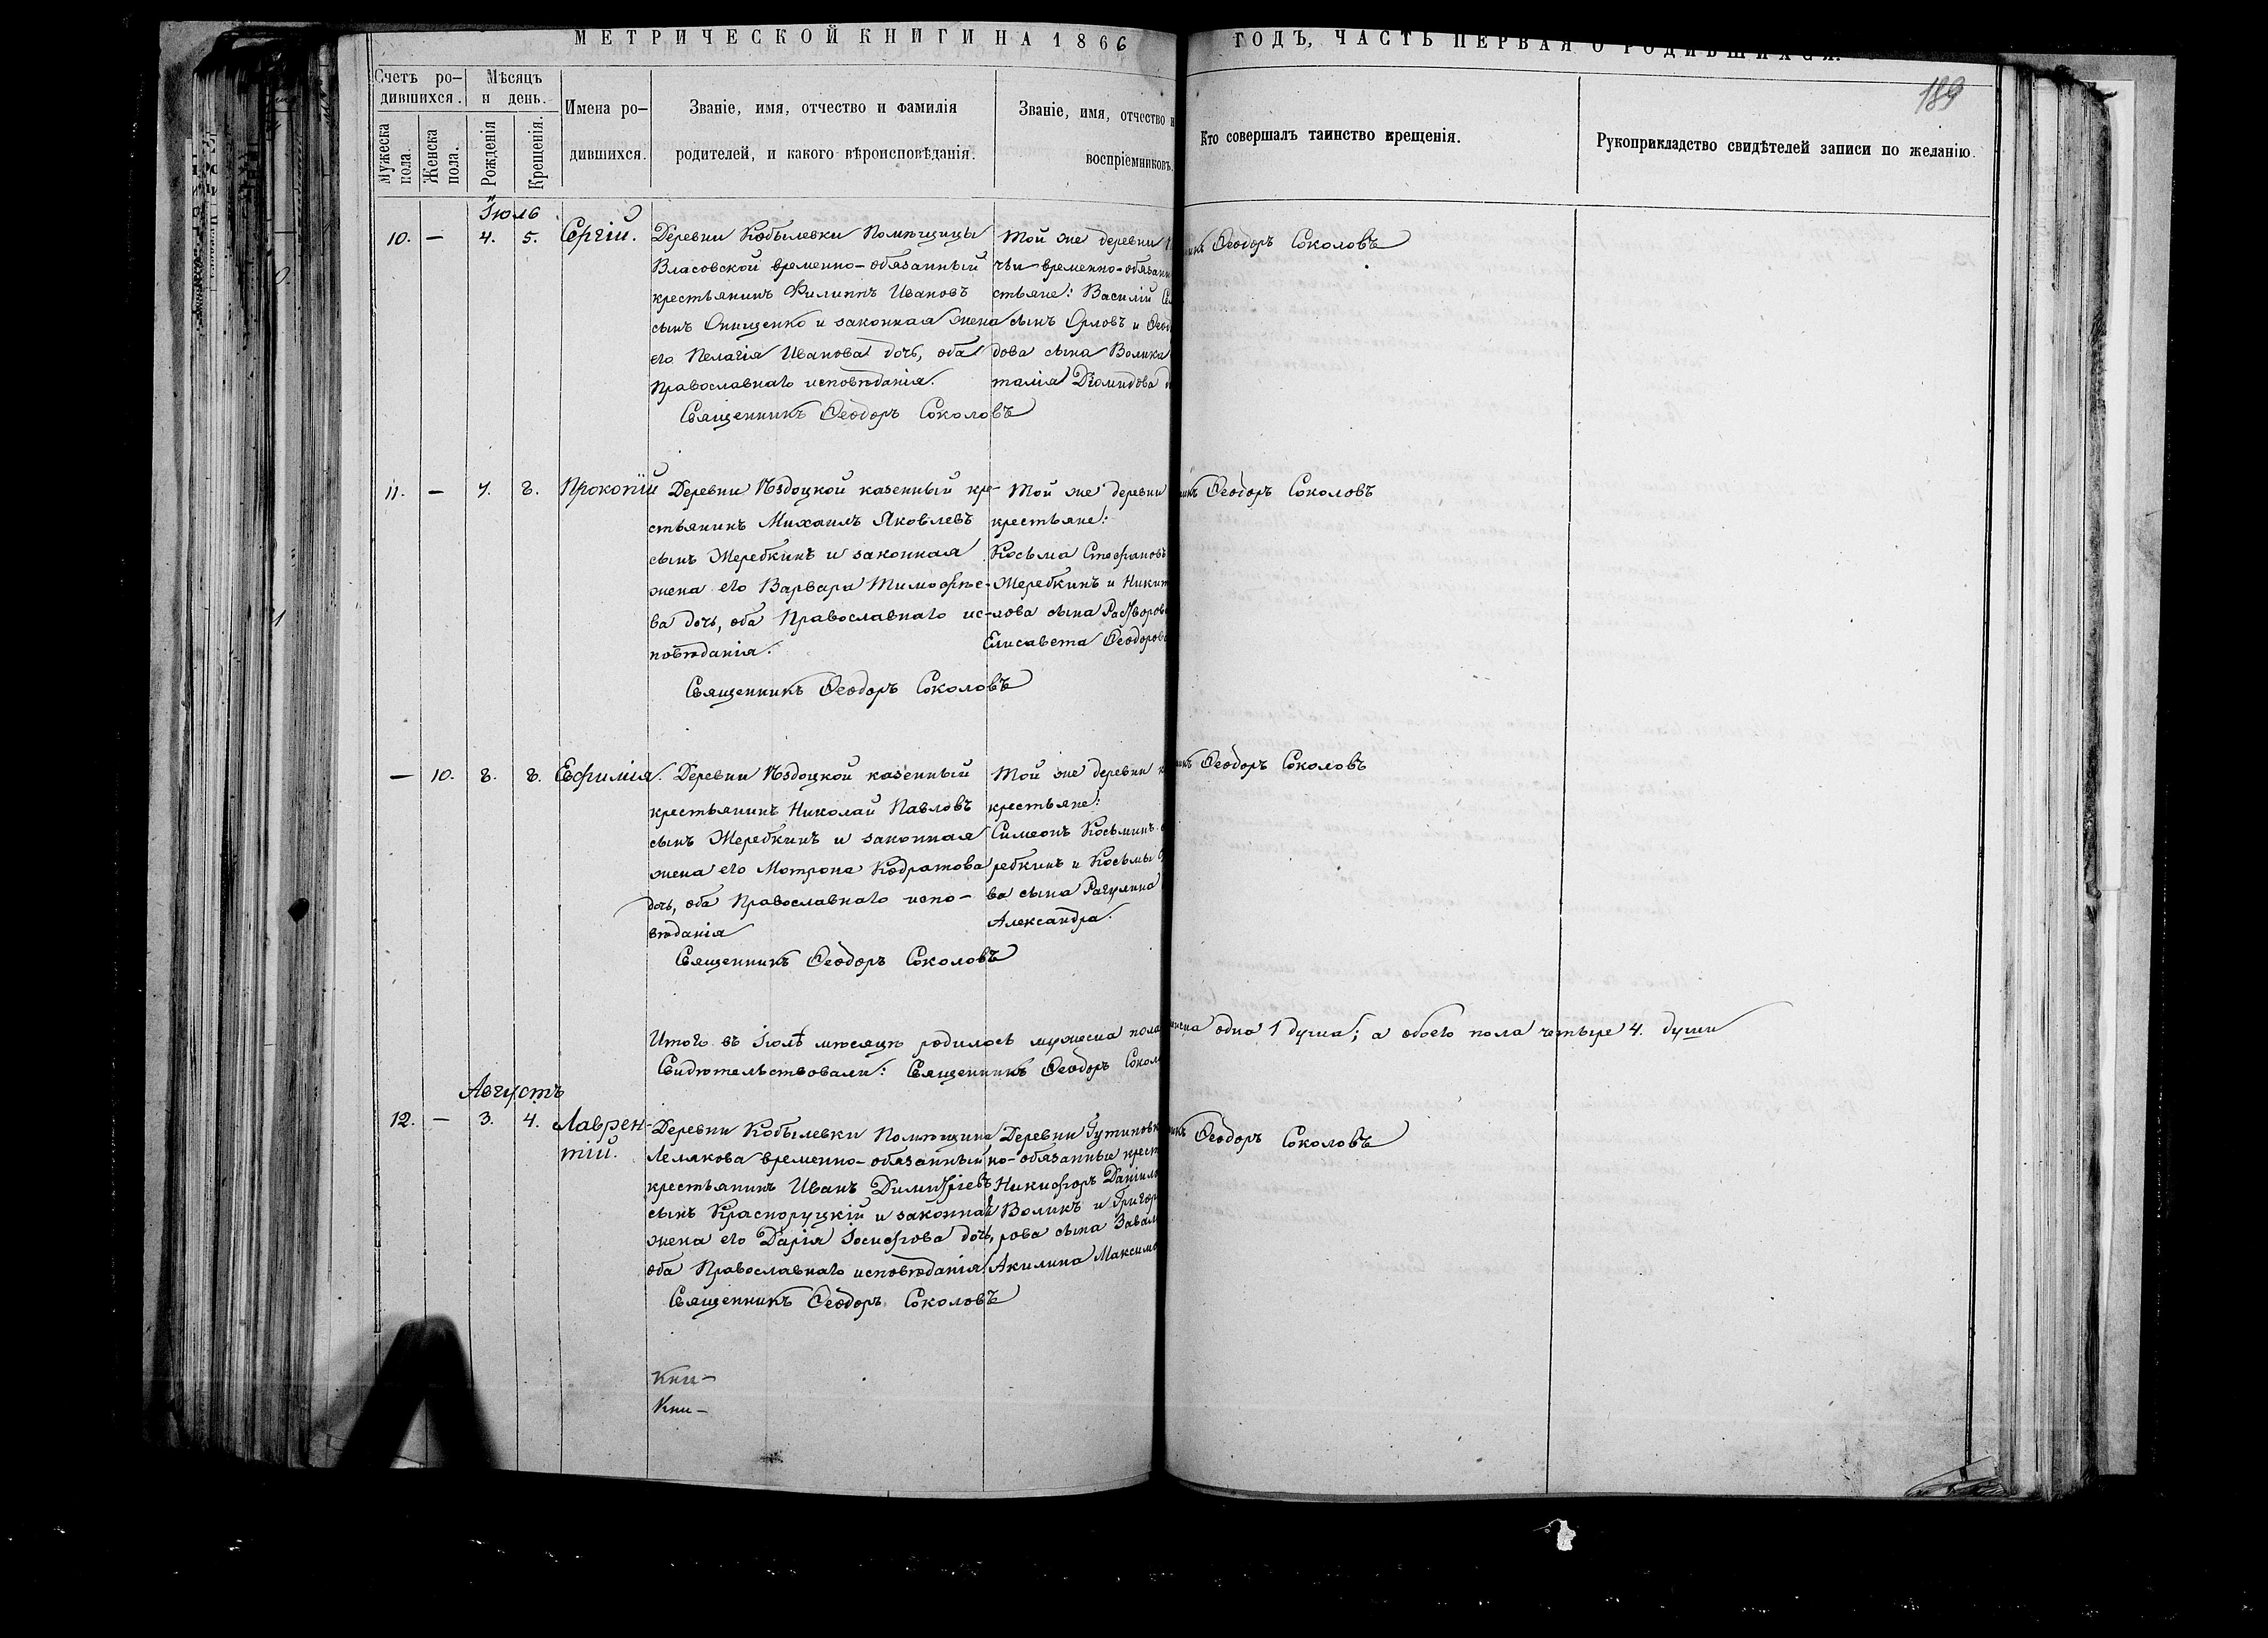 МЕТРИЧЕСКОЙ КНИГИ НА 1866
ГОДЪ, ЧАСТЬ ПЕРВАЯ О РОДИВШИХСЯ.
189
Счетъ ро-
дившихся.
Мужеска
пола.
Женска
пола.
Мѣсяцъ
и день.
Рожденія
Крещенія.
Имена ро-
дившихся.
Званіе, имя, отчество и фамилія
родителей, и какого вѣроисповѣданія.
Званіе, имя, отчество и
воспріемниковъ.
Кто совершалъ таинство крещенія.
Рукоприкладство свидѣтелей записи по желанію.
Іюль
10. — 4. 5. Сергій.
Деревни Кобылевки Помѣщицы
Власовской временно-обязанный
крестьянинъ Филиппъ Ивановъ
сынъ Онищенко и законная жена
его Пелагія Иванова дочь, оба
Православнаго исповѣданія.
Священникъ Ѳеодоръ Соколовъ
Той же деревни
чьи временно-обязан
стьяне: Василій
сынъ Орловъ и Ѳеод
дова сына Волика
талія Діомидова
Ѳеодоръ Соколовъ
11. — 7. 8. Прокопій
Деревни Ѣздоцкой казенный кре-
стьянинъ Михаилъ Яковлевъ
сынъ Жеребкинъ и законная
жена его Варвара Тимофѣе-
ва дочь, оба Православнаго ис-
повѣданія.
Священникъ Ѳеодоръ Соколовъ
Той же деревни
крестьяне:
Косьма Стефановъ
Жеребкинъ и Никит
лова сына Растворов
Елисавета Ѳеодоров
Ѳеодоръ Соколовъ
— 10. 8. 8. Евфимія.
Деревни Ѣздоцкой казенный
крестьянинъ Николай Павловъ
сынъ Жеребкинъ и законная
жена его Мотрона Кодратова
дочь, оба Православнаго испо-
вѣданія
Священникъ Ѳеодоръ Соколовъ
Той же деревни к
крестьяне:
Симеонъ Косьминъ
ребкинъ и Косьмы
ва сына Рагулина
Александра.
Ѳеодоръ Соколовъ
Итого въ Іюлѣ мѣсяцѣ родилось мужеска пола
женска одна 1 душа; а обоего пола четыре 4. души
Свидѣтельствовали: Священникъ Ѳеодоръ Сокол
Августъ
12. — 3. 4. Лаврен-
тій.
Деревни Кобылевки Помѣщика
Лемякова временно-обязанный
крестьянинъ Иванъ Димитріевъ
сынъ Краснорутскій и законная
жена его Дарія Іосифова дочь,
оба Православнаго исповѣданія.
Священникъ Ѳеодоръ Соколовъ
Деревни Гутиновк
но-обязанные крест
Никифоръ Даніило
Воликъ и Григор
рова сына Завал
Акилина Максимо
Ѳеодоръ Соколовъ
Кни-
Кни-